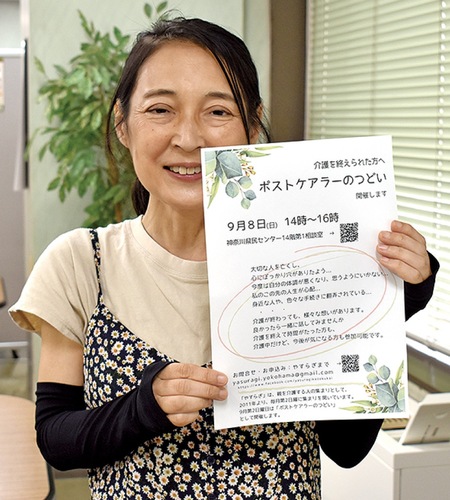 介護を終えられた方へ
ポストケアラーのつどい
開催します
9月8日(日) 14時～16時
神奈川県民センター14階第1相談室 →
大切な人を亡くし、
心にぽっかり穴がありたよう…
今度は自分の体調が悪くなり、思うようにいかない…
私のこの先の人生が心配…
身近な人や、色々な手続きに翻弄されている…
・ ・ ・ ・
介護が終わっても、様々な想いがあります。
良かったら一緒に話してみませんか
介護を終えて時間がたった方も、
介護中だけど、今後が気になる方も参加可能です。
お問合せ・お申込み：やすらぎまで
yasuragi.yokohama@gmail.com
「やすらぎ」は、親を介護する人の集まりとして、
2011年より、毎月第2日曜に集まりを開いています。
9月第2日曜日は「ポストケアラーのつどい」
として開催します。